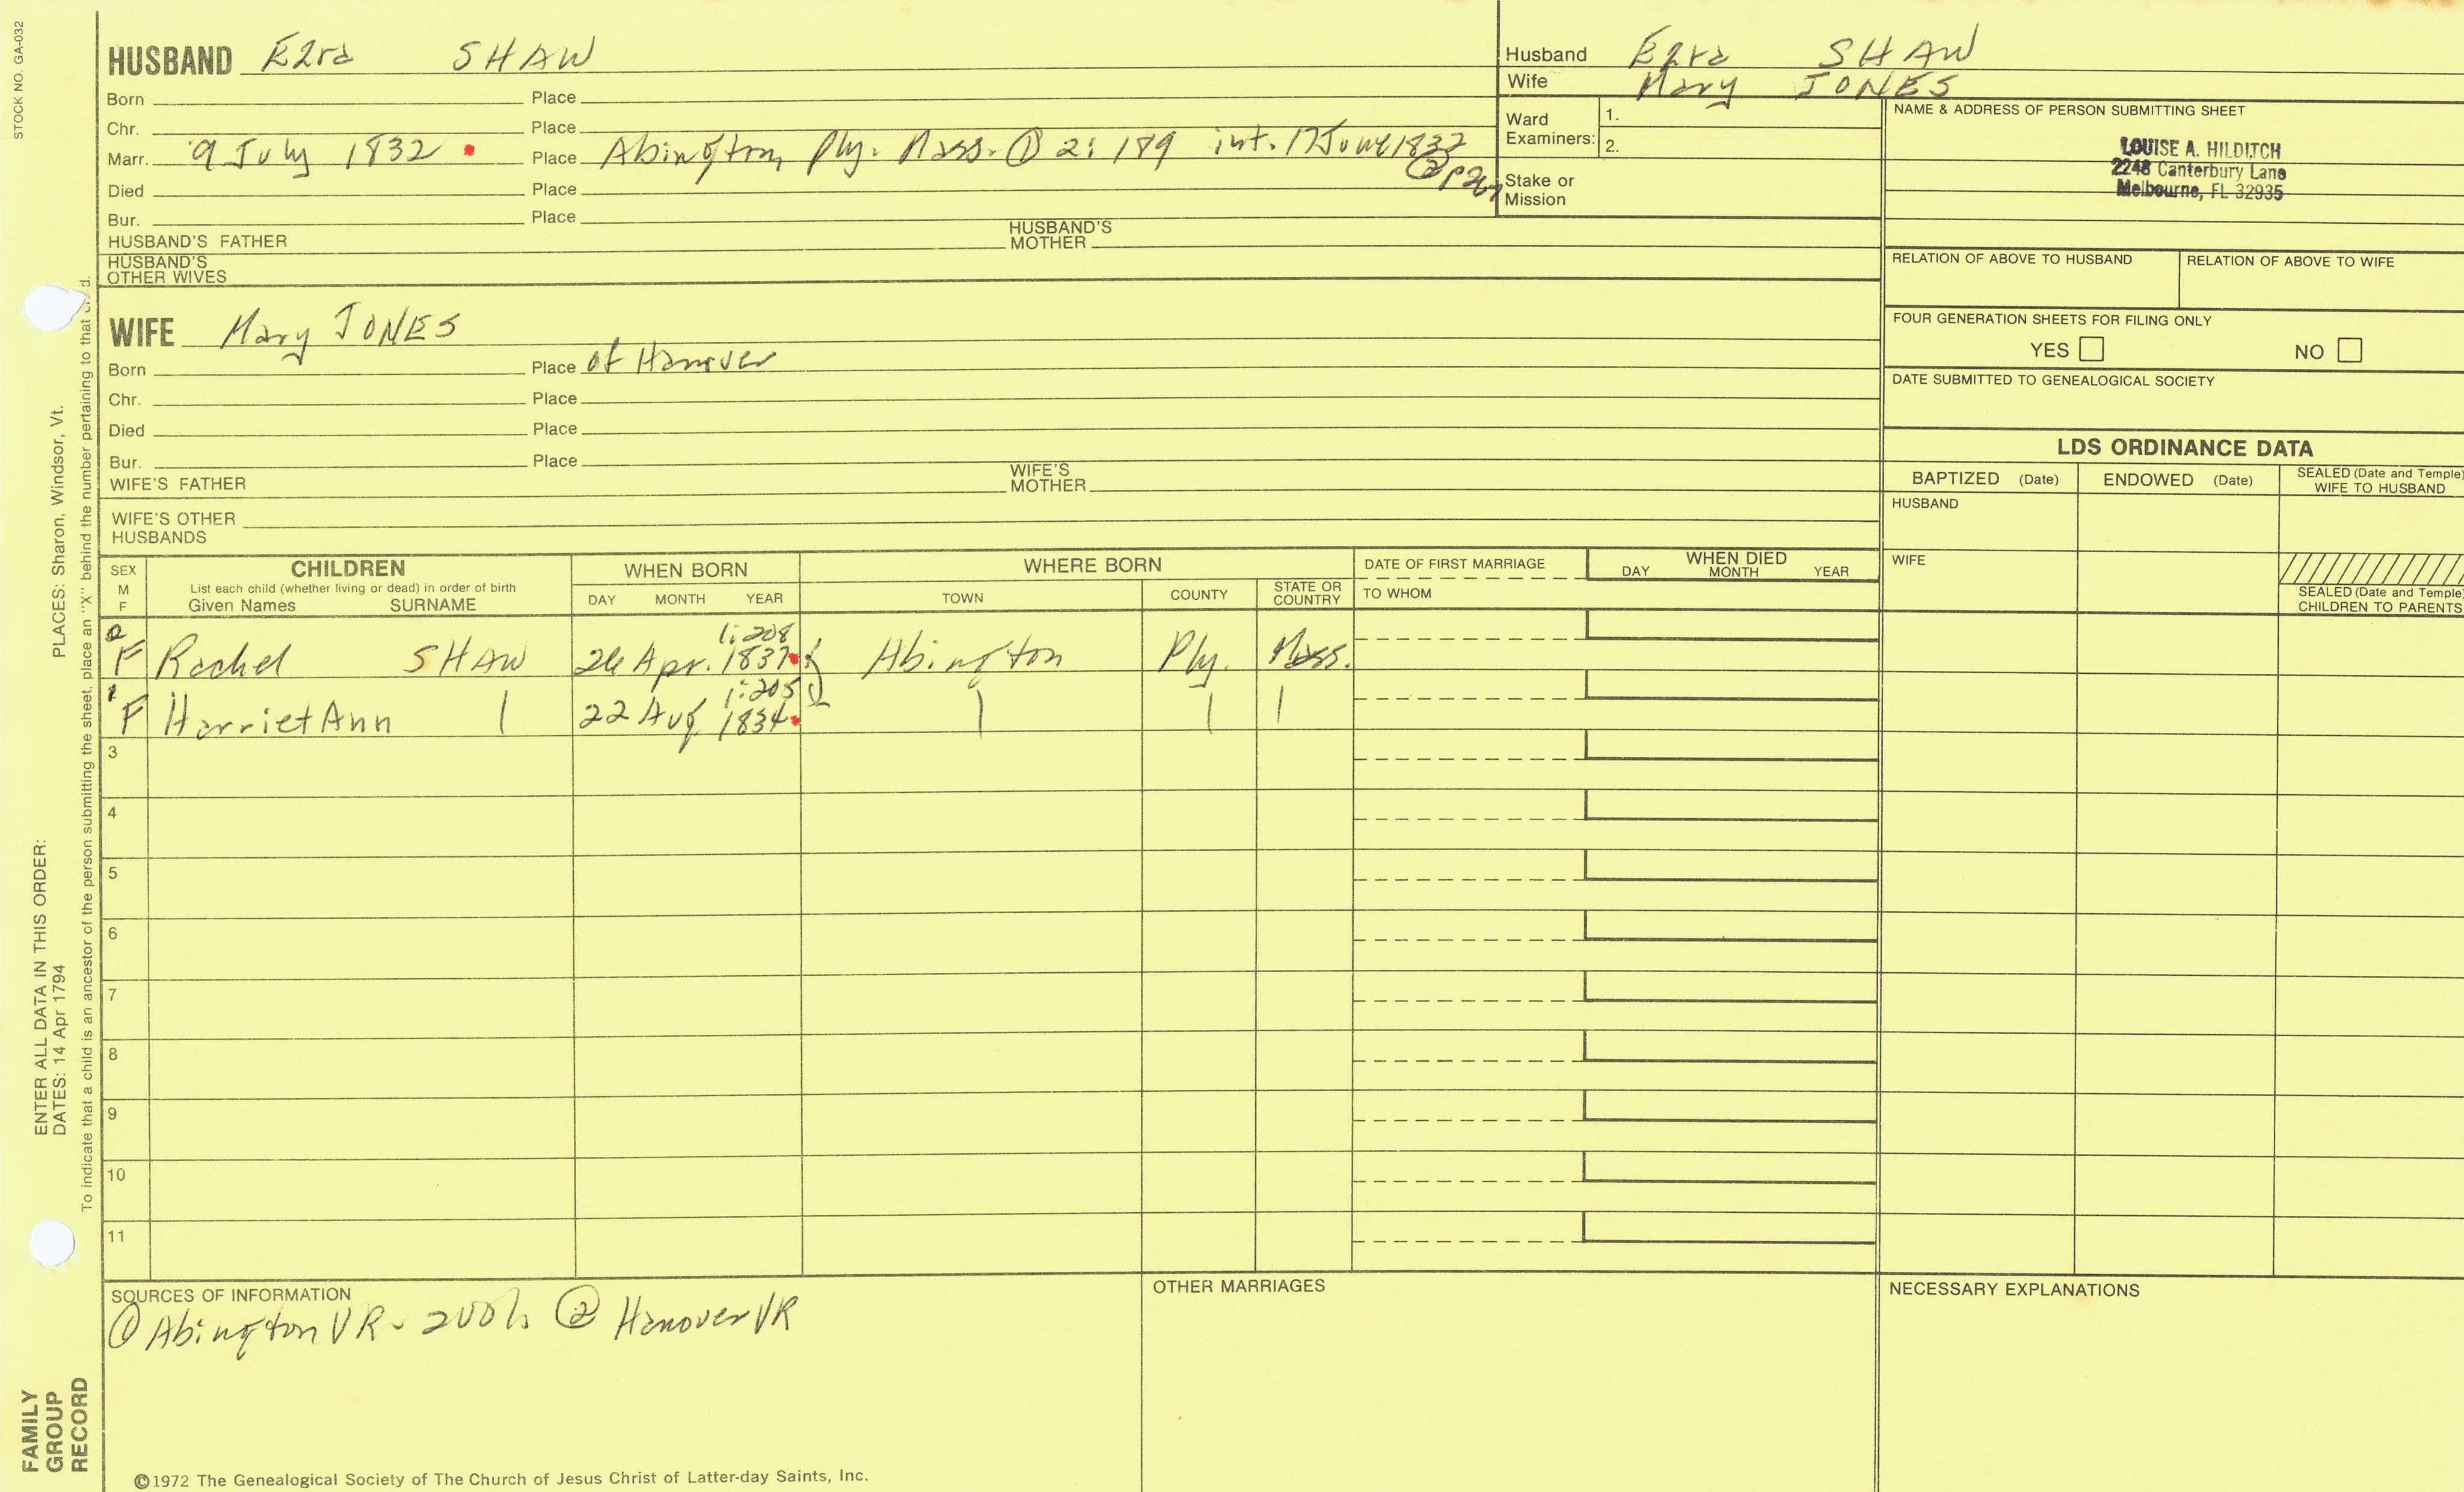 STOCK NO. GA-032
HUSBAND Ezra SHAW
Born Place
Chr. Place
Marr. 9 July 1832 Place Abington, Ply. Mass. ① 2:189 int. 17 June 1832
② p
Died Place
Bur. Place
HUSBAND'S FATHER HUSBAND'S MOTHER
HUSBAND'S
OTHER WIVES
Husband Ezra SHAW
Wife Mary JONES
Ward Examiners: 1.
2.
Stake or
Mission
NAME & ADDRESS OF PERSON SUBMITTING SHEET
LOUISE A. HILDITCH
2248 Canterbury Lane
Melbourne, FL 32935
RELATION OF ABOVE TO HUSBAND RELATION OF ABOVE TO WIFE
FOUR GENERATION SHEETS FOR FILING ONLY
YES NO
DATE SUBMITTED TO GENEALOGICAL SOCIETY
WIFE Mary JONES
Born Place of Hanover
Chr. Place
Died Place
Bur. Place
WIFE'S FATHER WIFE'S MOTHER
WIFE'S OTHER
HUSBANDS
LDS ORDINANCE DATA
BAPTIZED (Date) ENDOWED (Date) SEALED (Date and Temple)
WIFE TO HUSBAND
HUSBAND
WIFE
SEALED (Date and Temple)
CHILDREN TO PARENTS
SEX
M
F
CHILDREN
List each child (whether living or dead) in order of birth
Given Names SURNAME
WHEN BORN
DAY MONTH YEAR
WHERE BORN
TOWN COUNTY STATE OR COUNTRY
DATE OF FIRST MARRIAGE
TO WHOM
WHEN DIED
DAY MONTH YEAR
2 1:208
F Rachel SHAW 26 Apr. 1837 Abington Ply. Mass.
1 1:205
F Harriet Ann | 22 Aug 1834 | | |
3
4
5
6
7
8
9
10
11
SOURCES OF INFORMATION
① Abington VR ② Hanover VR
OTHER MARRIAGES
NECESSARY EXPLANATIONS
©1972 The Genealogical Society of The Church of Jesus Christ of Latter-day Saints, Inc.
ENTER ALL DATA IN THIS ORDER:
DATES: 14 Apr 1794 PLACES: Sharon, Windsor, Vt.
To indicate that a child is an ancestor of the person submitting the sheet, place an "X" behind the number pertaining to that
FAMILY
GROUP
RECORD